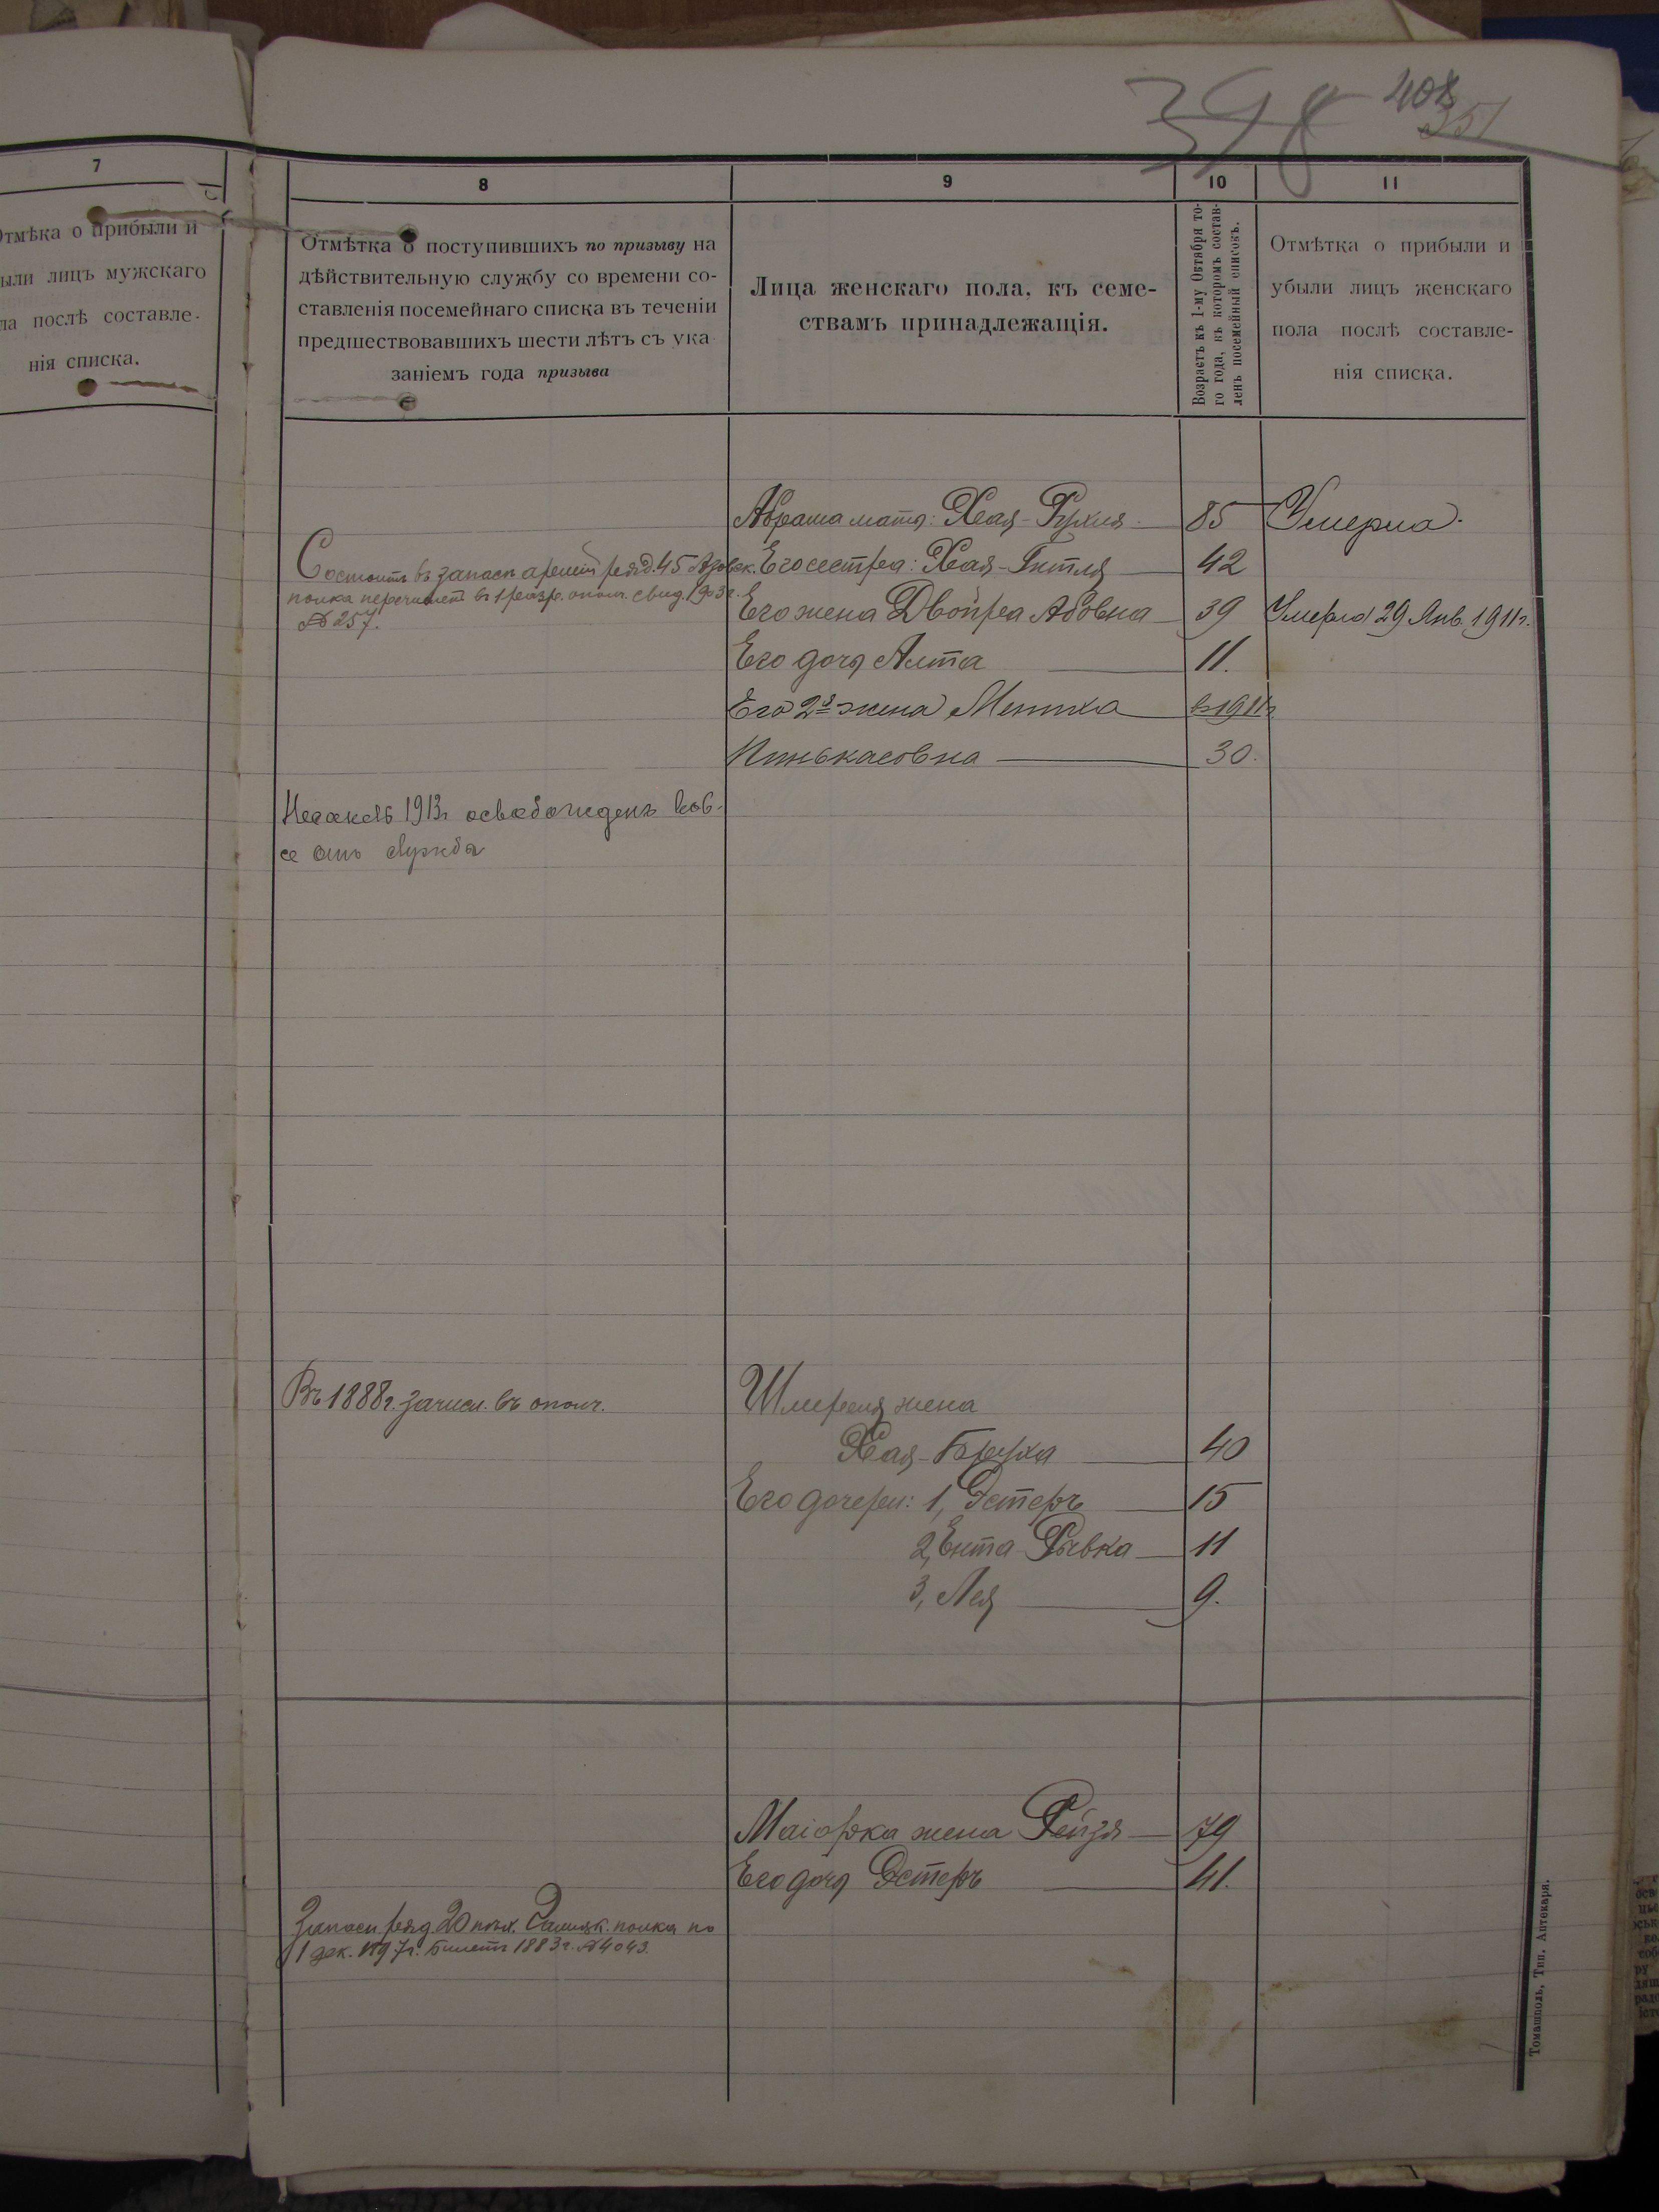 398 408
351
7
Отмѣка о прибыли и
ыли лицъ мужскаго
ла послѣ составле-
нія списка.
8
Отмѣтка о поступившихъ по призыву на
дѣйствительную службу со времени со-
ставленія посемейнаго списка въ теченіи
предшествовавшихъ шести лѣтъ съ ука
заніемъ года призыва
9
Лица женскаго пола, къ семе-
ствамъ принадлежащія.
10
Возрастъ къ 1-му Октября то-
го года, въ которомъ состав-
ленъ посемейный списокъ.
11
Отмѣтка о прибыли и
убыли лицъ женскаго
пола послѣ составле-
нія списка.
Абрама мать: Хая-Рухля 85 Умерла.
Состоитъ въ запасѣ арміи ряд. 45 Азовск.
полка перечислен въ 1 разр. ополч. свид. 1903 г.
№ 257.
Его сестра: Хая-Гитля 42
Его жена Двойра Абовна 39 Умерла 29 Янв. 1911 г.
Его дочь Алта 11.
Его 2я жена Мениха в 1911 г.
Пинькасовна 30.
1913 г освобожденъ вов-
се отъ службы
Въ 1888 г. зачисл. въ ополч.
Шмереля жена
Хая-Бруха 40
Его дочери: 1, Эстеръ 15
2, Ента Рывка 11
3, Лея 9.
Маіорка жена Рейзя 79
Его дочь Эстеръ 41.
Запасн ряд 20 пѣх. Галицк. полка по
1 дек. 1897 г. Билетъ 1883 г. № 4043.
Томашполь, Тип. Аптекаря.